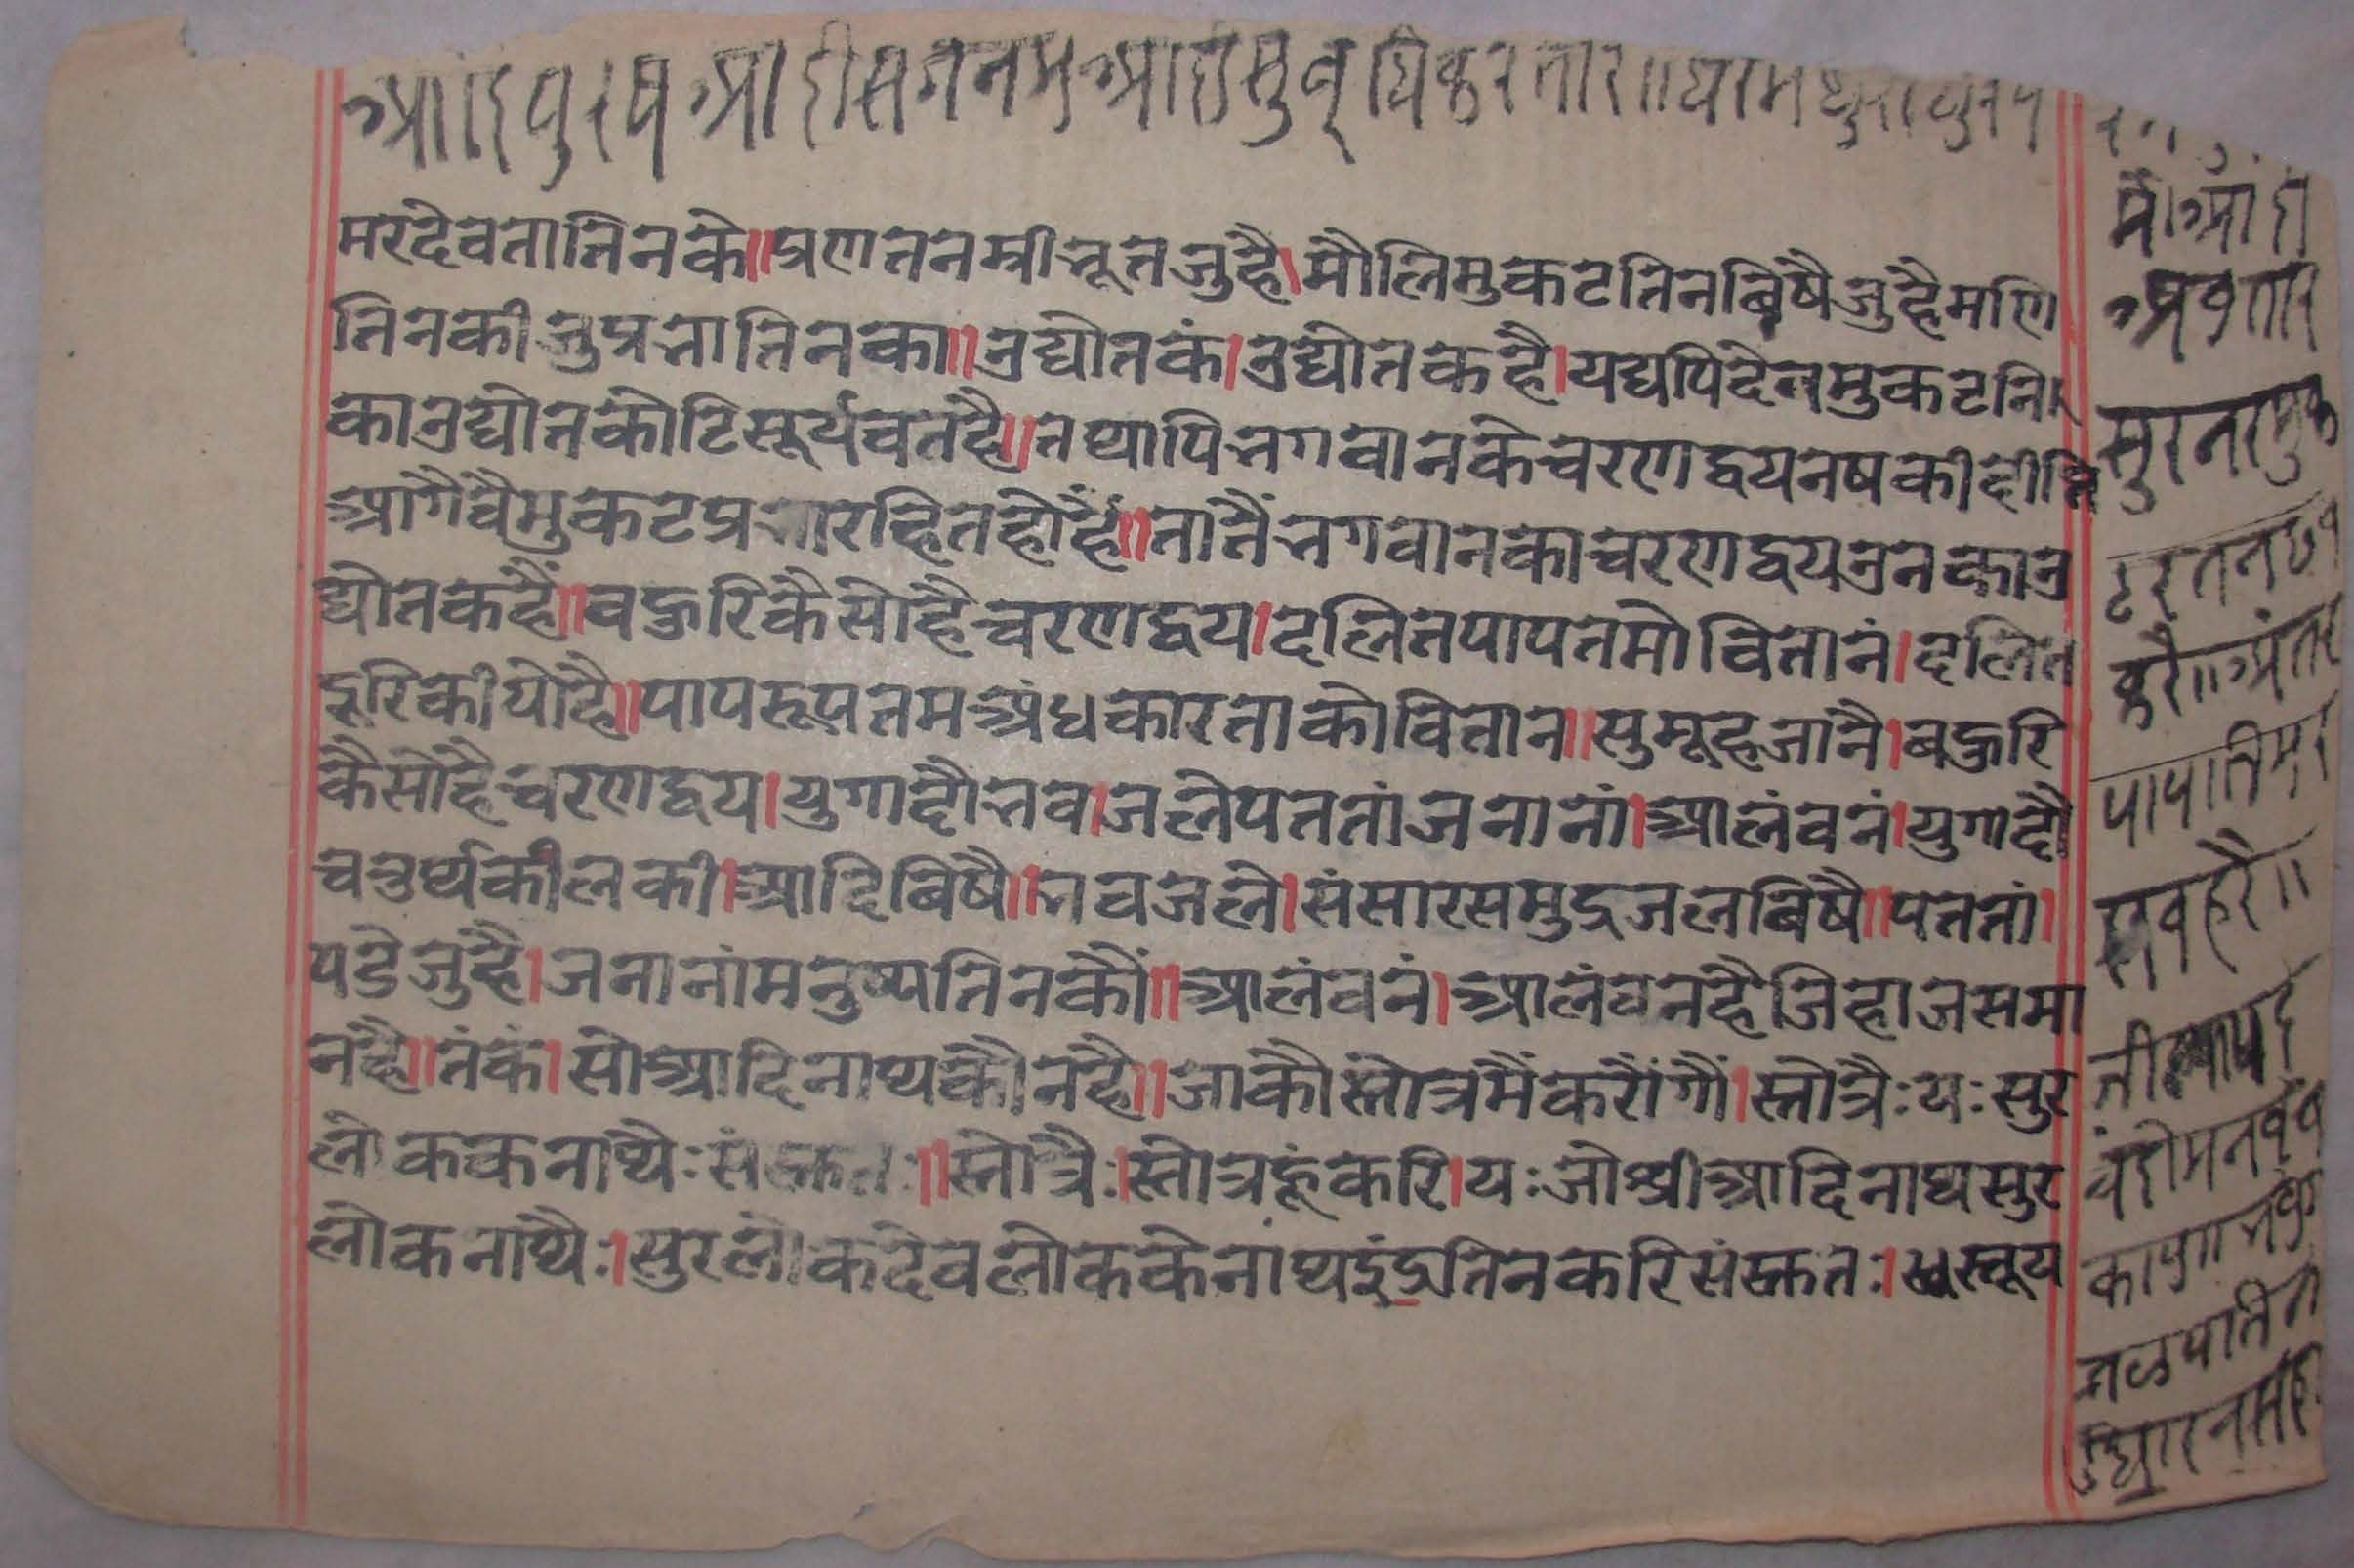 आदिपुरष आदीसजनम आदिसुबुधिकरतार॥ धरमधुराधुर प
मरदेवतातिनके॥प्रणतनम्रीभूतजुहै।मौलिमुकटतिनबिषैजुहैमणि
तिनकीजुप्रभातिनका॥उद्योतकं।उद्योतकहै।यद्यपिदेवमुकटनि।
काउद्योतकोटिसूर्यवतहै॥तथापिभगवानकेचरणद्वयनषकीदीप्ति
आगैवैमुकटप्रभारहितहोहैं॥तातैंभगवानकाचरणद्वयउनकाउ
द्योतकहैं॥बहुरिकैसोहैचरणद्वय।दलितपापतमोवितानं।दलित
दूरिकीयोहै॥पापरूपतमअंधकारताकोवितान॥सुमूहजानै।बहुरि
कैसोहैचरणद्वय।युगादौभव।जलेपततांजनानां।आलंवनं।युगादौ
चतुर्थकालकी।आदिबिषै॥भवजले।संसारसमुद्रजलबिषै॥पततां।
पडेजुहै।जनानांमनुष्यतिनकौं॥आलंवनं।आलंवनहैजिहाजसमा
नहै॥तंकं।सोआदिनाथकौनहै॥जाकौस्तोत्रमैंकरौंगौं।स्तोत्रैःयःसुर
लोककनाथैःसंस्तुतः॥स्तोत्रैः।स्तोत्रहूंकरि।यःजोश्रीआदिनाथसुर
लोकनाथैः।सुरलोकदेवलोककेनाथइंद्रतिनकरिसंस्तुतः।स्तूय
आदी
अवतार
सुरनरमुक
टरतनछवि
करै॥अंतर
पापतिमर
सवहरै॥
वंदोमनवच
काय॥भव
जलपतित
उधारनसह